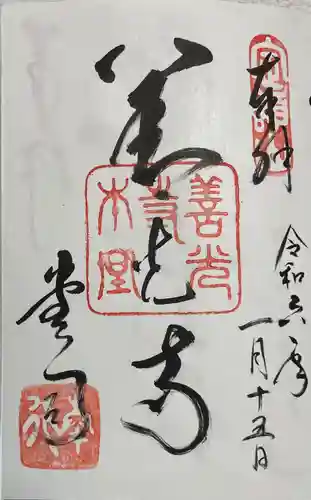 奉拝
令和六年
一月十五日
善光寺
善光寺
本堂
堂司